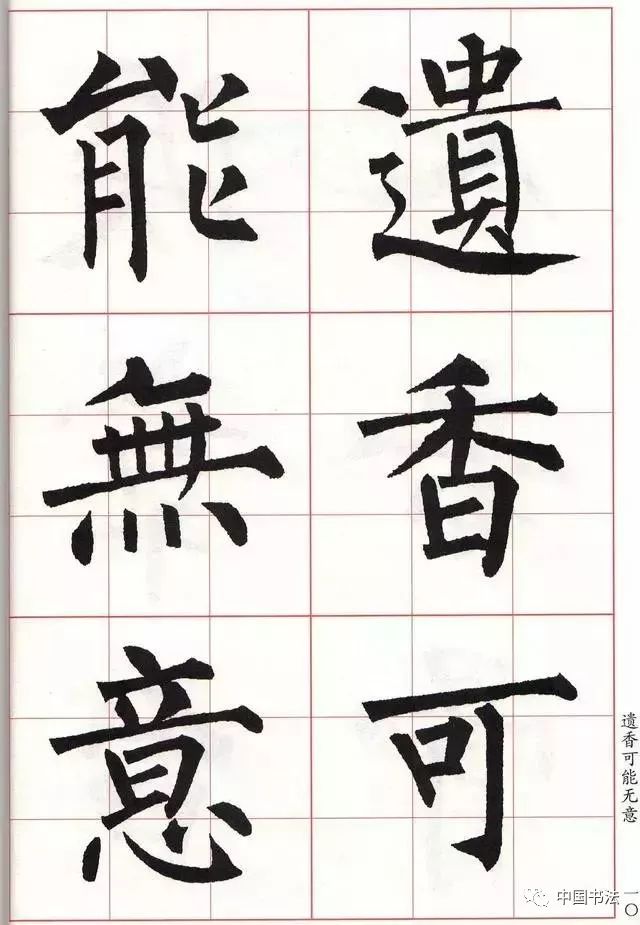 遺香可
能無意
遗香可能无意
一〇
中国书法